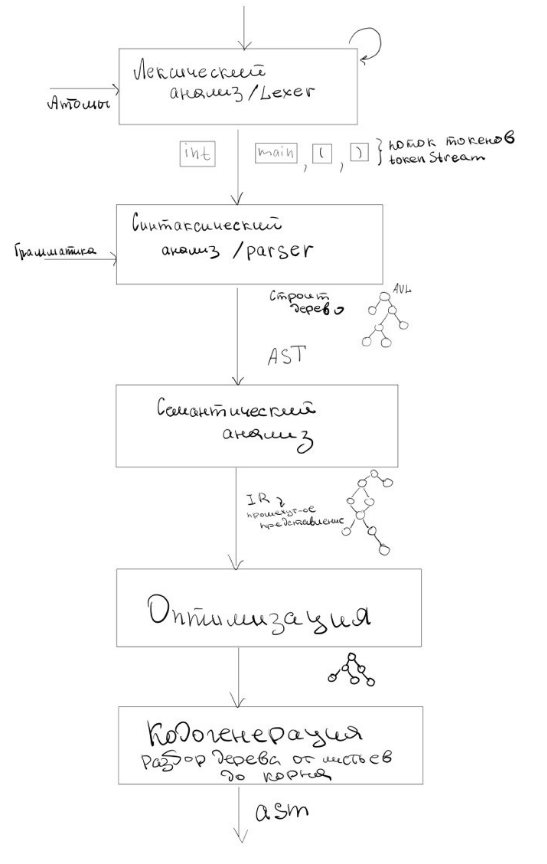 Лексический
анализ/Lexer
Атомы
int main , ( , ) } поток токенов
tokenStream
Синтаксический
анализ/parser
Грамматика
Строит
дерево
AVL
AST
Семантический
анализ
IR
промежут-ое
представление
Оптимизация
Кодогенерация
разбор дерева от листьев
до корня
asm